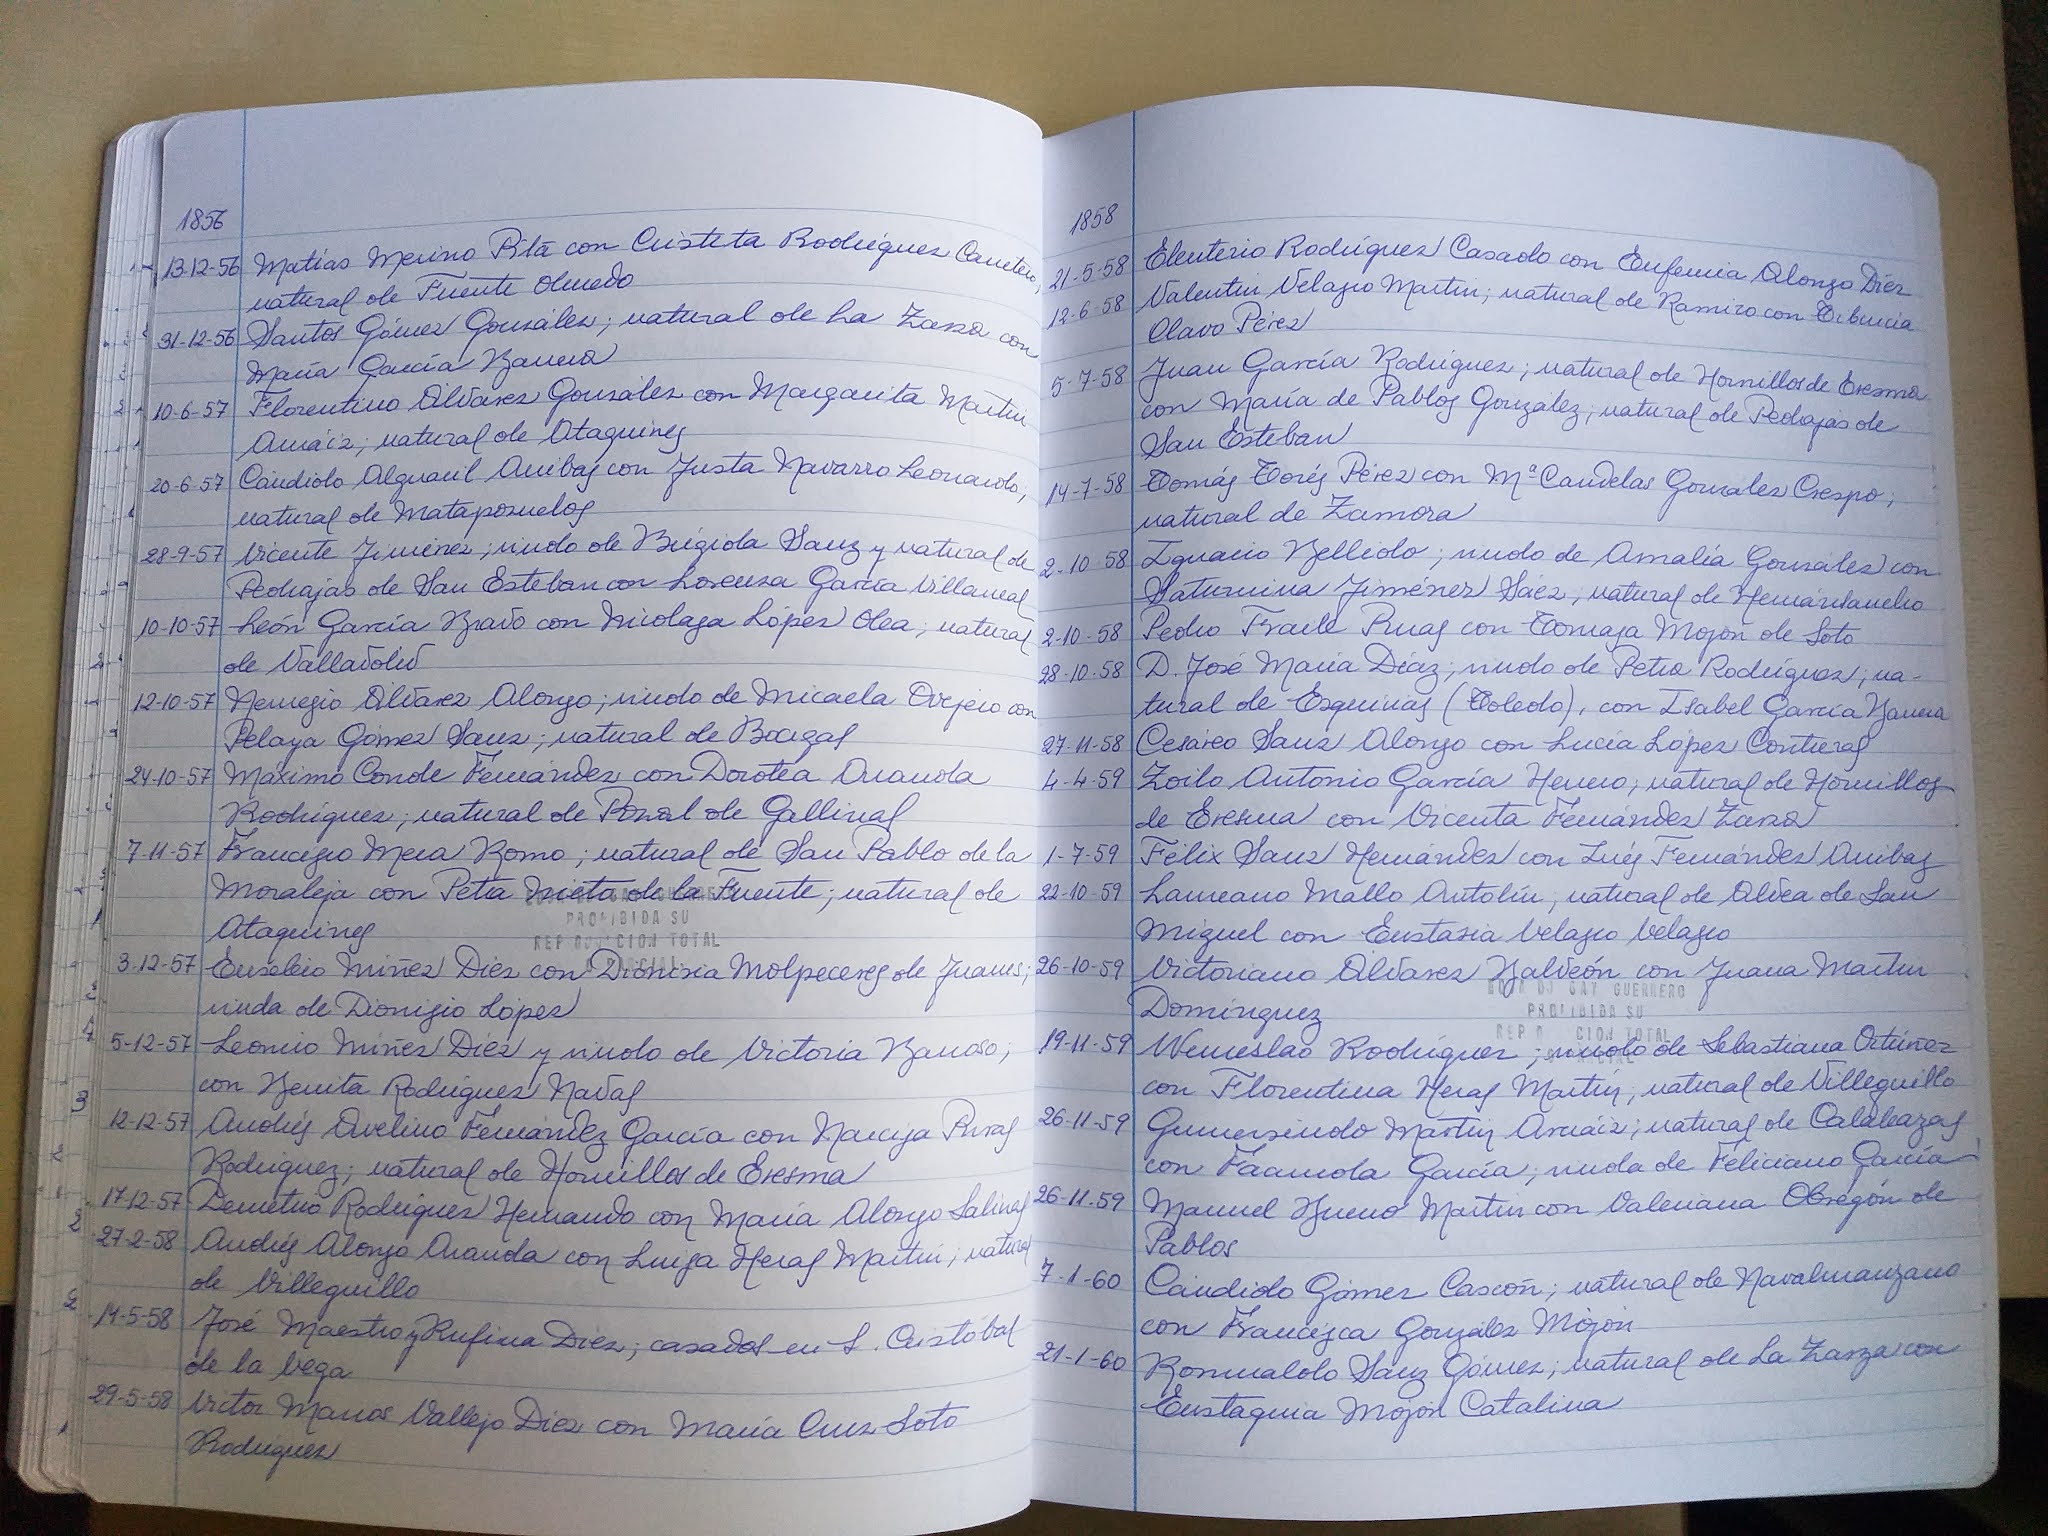 1856
13-12-56 Matías Merino Pita con Cristeta Rodríguez Carretero,
natural de Fuente Olmedo
31-12-56 Santos Gómez González; natural de La Zarza con
María García Barrero
10-6-57 Florentino Alvarez González con Margarita Martín
Arnáiz; natural de Ataquines
20-6-57 Cándido Alguacil Arribas con Justa Navarro Leonardo;
natural de Matapozuelos
28-9-57 Vicente Jiménez; viudo de Brígida Sanz y natural de
Pedrajas de San Esteban con Lorenza García Villarreal
10-10-57 León García Bravo con Nicolasa López Olea; natural
de Valladolid
12-10-57 Nemesio Alvarez Alonso; viudo de Micaela Ovejero con
Pelaya Gómez Sanz; natural de Bocigas
24-10-57 Máximo Conde Fernández con Dorotea Aranda
Rodríguez; natural de Pozal de Gallinas
7-11-57 Francisco Mera Romo; natural de San Pablo de la
Moraleja con Petra Nieto de la Fuente; natural de
Ataquines
3-12-57 Eusebio Núñez Díez con Dionisia Molpeceres de Juanes;
viuda de Dionisio López
5-12-57 Leoncio Núñez Díez y viudo de Victoria Barroso;
con Benita Rodríguez Navas
12-12-57 Andrés Avelino Fernández García con Narcisa Puras
Rodríguez; natural de Hornillos de Eresma
17-12-57 Demetrio Rodríguez Hernando con María Alonso Salinas
27-2-58 Andrés Alonso Aranda con Luisa Heras Martín; natural
de Villeguillo
14-5-58 José Maestro y Rufina Díez; casados en S. Cristobal
de la Vega
29-5-58 Victor Marcos Vallejo Díez con María Cruz Soto
Rodríguez
1858
21-5-58 Eleuterio Rodríguez Casado con Eufemia Alonso Díez
12-6-58 Valentín Velasco Martín; natural de Ramiro con Tiburcia
Olavo Pérez
5-7-58 Juan García Rodríguez; natural de Hornillos de Eresma
con María de Pablos González; natural de Pedrajas de
San Esteban
14-7-58 Tomás Torés Pérez con Mª Candelas Gonzalez Crespo;
natural de Zamora
2-10-58 Ignacio Bellido; viudo de Amalia González con
Saturnina Jiménez Sáez, natural de Hernánsancho
2-10-58 Pedro Fraile Puras con Tomasa Mojón de Soto
28-10-58 D. José María Díaz; viudo de Petra Rodríguez; na-
tural de Esquivias (Toledo), con Isabel García Barrera
27-11-58 Cesáreo Sanz Alonso con Lucía López Contreras
4-4-59 Zoilo Antonio García Herrero; natural de Hornillos
de Eresma con Vicenta Fernández Zarza
1-7-59 Félix Sanz Hernández con Inés Fernández Arribas
22-10-59 Laureano Mallo Antolín; natural de Aldea de San
Miguel con Eustasia Velasco Velasco
26-10-59 Victoriano Alvarez Baldeón con Juana Martín
Domínguez
19-11-59 Wenceslao Rodríguez; viudo de Sebastiana Ortúñez
con Florentina Heras Martín, natural de Villeguillo
26-11-59 Gumersindo Martín Arnáiz; natural de Calabazas
con Facunda García; viuda de Feliciano García
26-11-59 Manuel Bueno Martín con Valeriana Obregón de
Pablos
7-1-60 Cándido Gómez Cascón; natural de Navalmanzano
con Francisca González Mojón
21-1-60 Romualdo Sanz Gómez; natural de La Zarza con
Eustaquia Mojón Catalina
PROHIBIDA SU
REPRODUCCION TOTAL
GUERRERO
PROHIBIDA SU
REPRODUCCION TOTAL